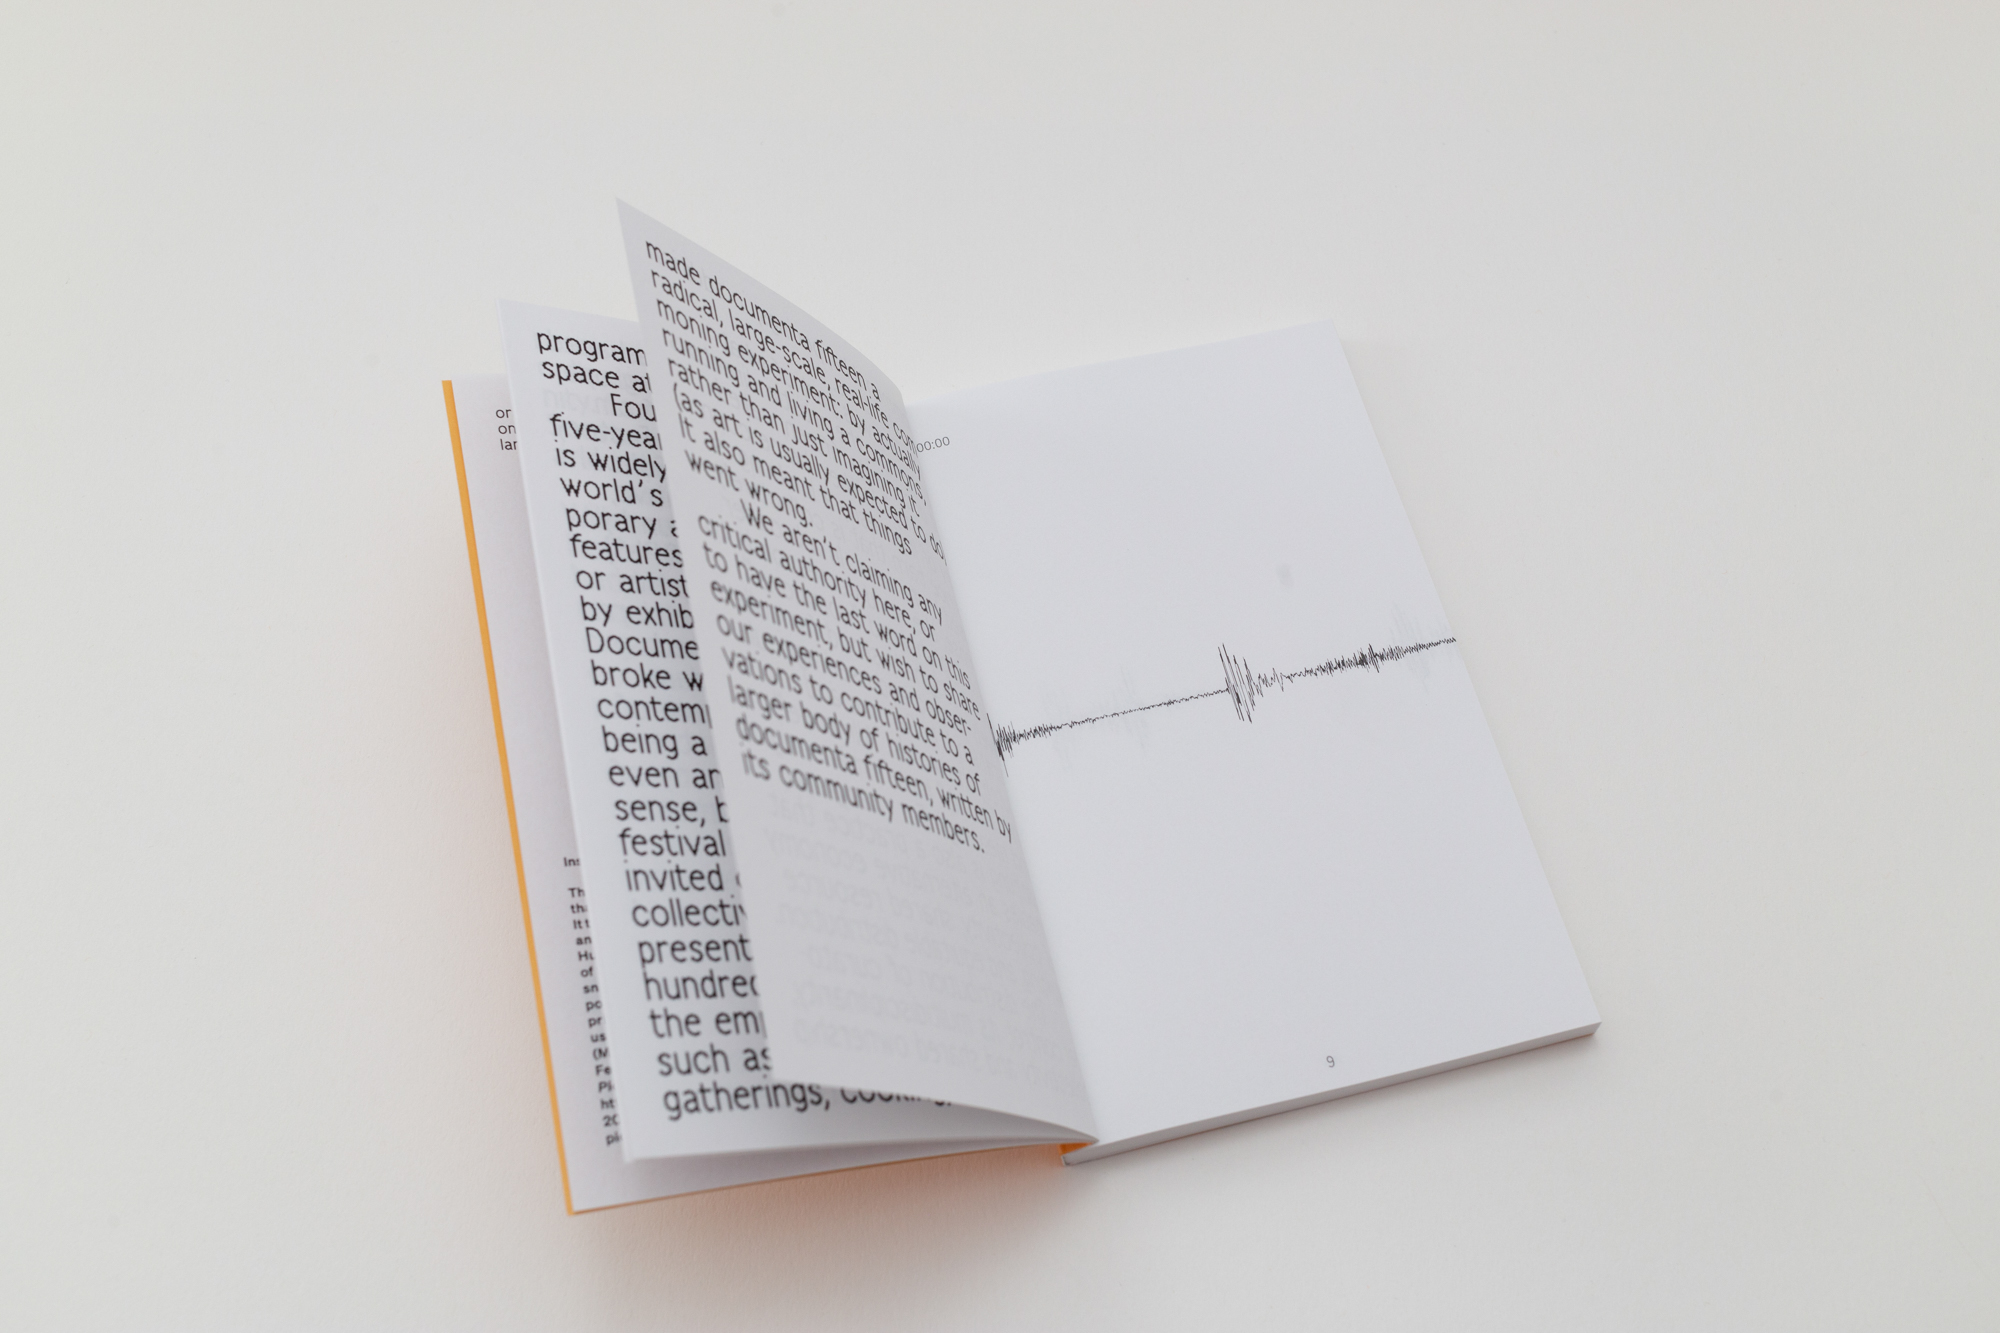 or
on
lar
Ins
Th
tha
It t
an
Hu
of
sn
po
pr
us
(M
Fe
Pl
ht
20
pi
program
space at
Fou
five-year
is widely
world's
porary a
features
or artist
by exhib
Docume
broke w
contemp
being a
even an
sense, b
festival
invited
collectiv
present
hundred
the emp
such as
gatherings, cooking,
made documenta fifteen a
radical, large-scale, real-life com-
moning experiment: by actually
running and living a commons,
rather than just imagining it
(as art is usually expected to do)
It also meant that things
went wrong.
We aren't claiming any
critical authority here, or
to have the last word on this
experiment, but wish to share
our experiences and obser-
vations to contribute to a
larger body of histories of
documenta fifteen, written by
its community members.
00:00
9